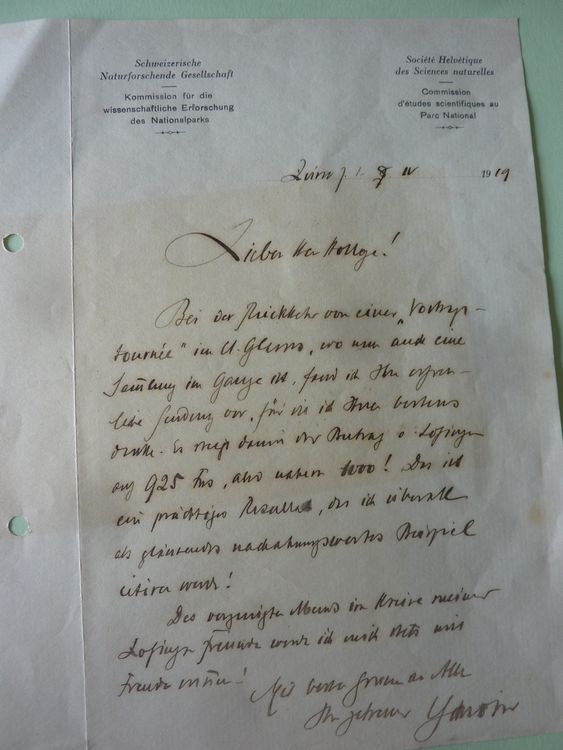 Schweizerische
Naturforschende Gesellschaft
Kommission für die
wissenschaftliche Erforschung
des Nationalparks
Société Helvétique
des Sciences naturelles
Commission
d'études scientifiques au
Parc National
IV 1919
Lieber Herr Kollege!
Bei der Rückkehr von einer „Vortrags-
tournée“ im Ct. Glarus, wo nun auch eine
Sammlung im Gange ist, fand ich Ihre erfreu-
liche Sendung vor, für die ich Ihnen bestens
danke. Es steigt damit der Beitrag v. Zofingen
auf 925 Frs, also nahezu 1000! Das ist
ein prächtiges Resultat, das ich überall
als glänzendes nachahmungswertes Beispiel
citiren werde!
Des vergnügten Abends im Kreise meiner
Zofinger Freunde werde ich mich stets mit
Freude erinnern!
Mit besten Grüssen an Alle
Ihr getreuer